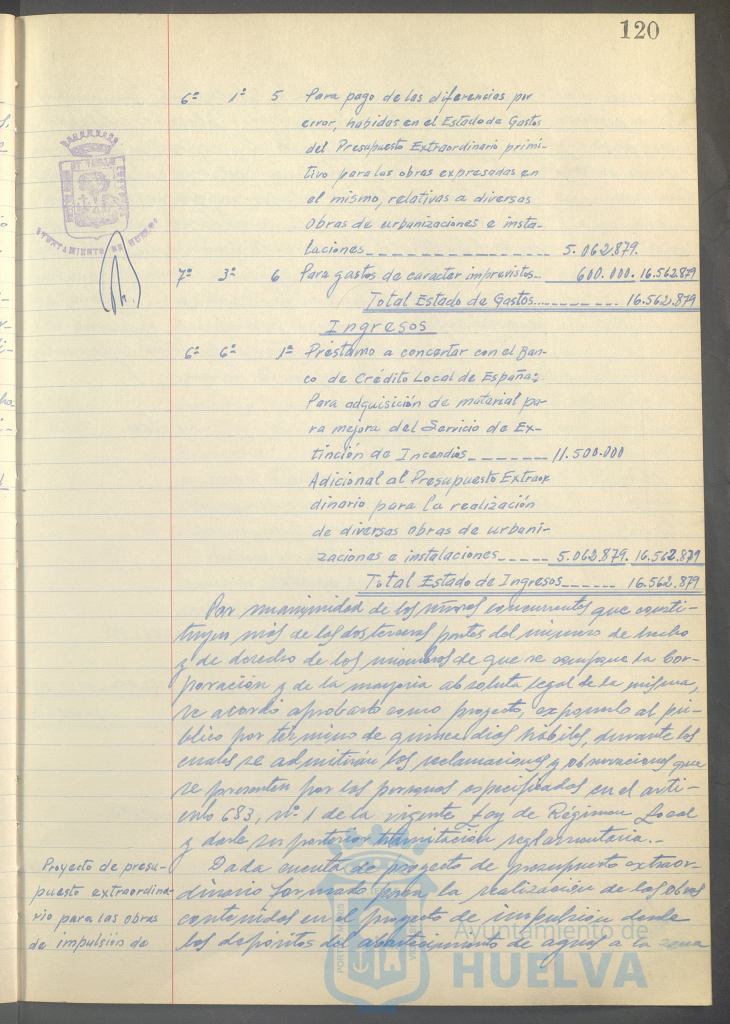 120
6º 1º 5 Para pago de las diferencias por
error, habidas en el Estado de Gastos
del Presupuesto Extraordinario primi-
tivo para las obras expresadas en
el mismo, relativas a diversas
Obras de urbanizaciones e insta-
laciones 5.062.879.
7º 3º 6 Para gastos de caracter imprevistos 600.000. 16.562.879
Total Estado de Gastos 16.562.879
Ingresos
6º 6º 1º Préstamo a concertar con el Ban-
co de Crédito Local de España:
Para adquisición de material pa-
ra mejora del Servicio de Ex-
tinción de Incendios 11.500.000
Adicional al Presupuesto Extraor
dinario para la realización
de diversas obras de urbani-
zaciones e instalaciones 5.062.879. 16.562.879
Total Estado de Ingresos 16.562.879
Por unanimidad de los señores concurrentes que consti-
tuyen más de las dos terceras partes del número de hecho
y de derecho de los miembros de que se compone la Cor-
poración y de la mayoria absoluta legal de la misma,
se acordó aprobarlo como proyecto, exponerlo al pú-
blico por termino de quince dias hábiles, durante los
cuales se admitirán las reclamaciones y observaciones que
se presenten por las personas especificadas en el arti-
culo 683, nº 1 de la vigente Ley de Régimen Local
y darle su posterior tramitación reglamentaria.-
Proyecto de presu-
puesto extraordina-
rio para las obras
de impulsión de
Dada cuenta de proyecto de presupuesto extraor-
dinario formado para la realización de las obras
contenidas en el proyecto de impulsión desde
los depósitos del abastecimiento de aguas a la zona
AYUNTAMIENTO DE HUELVA
Ayuntamiento de
HUELVA